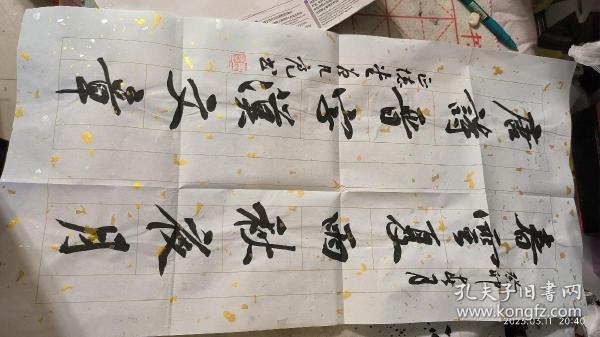 春雲夏雨秋夜月
唐詩晋字漢文章
孔夫子旧书网
www.kongfz.com
2023.03.11 20:40